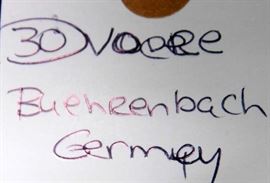 30 Voere
Buehrenbach
Germany